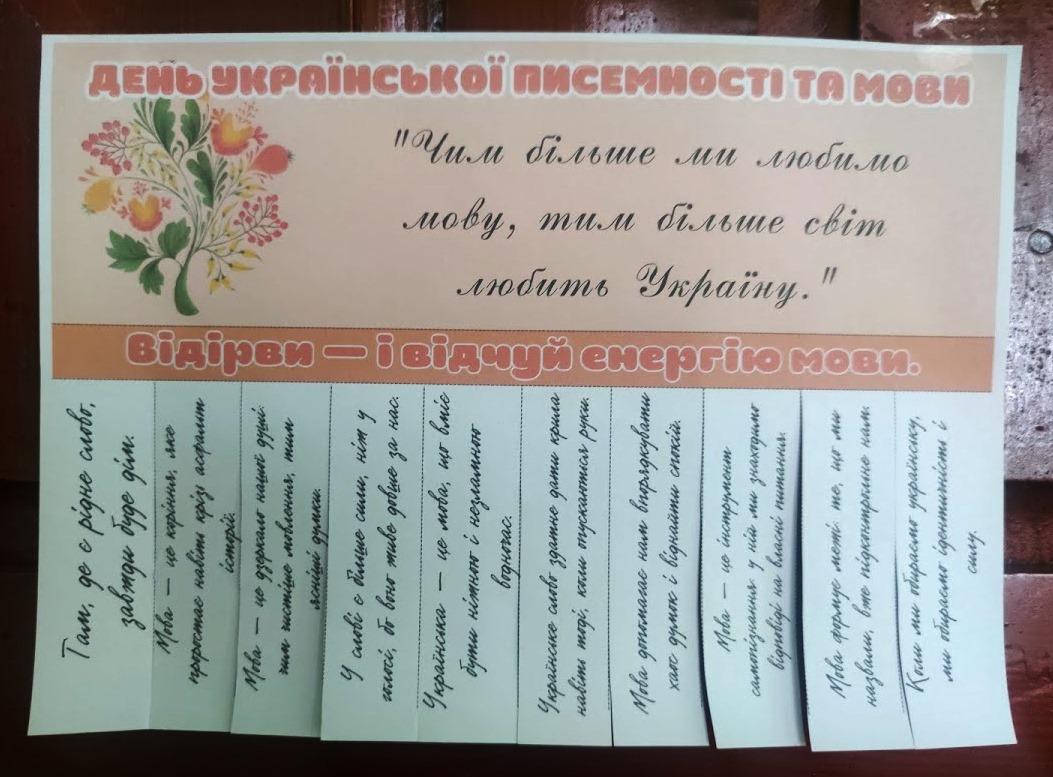 ДЕНЬ УКРАЇНСЬКОЇ ПИСЕМНОСТІ ТА МОВИ
"Чим більше ми любимо
мову, тим більше світ
любить Україну."
Відірви — і відчуй енергію мови.
Там, де є рідне слово,
завжди буде дім.
Мова — це коріння, яке
проростає навіть крізь асфальт
історії.
Мова — це дзеркало нашої душі:
чим чистіше мовлення, тим
ясніші думки.
У слові є більше сили, ніж у
голосі, бо воно живе довше за нас.
Українська — це мова, що вміє
бути ніжною і незламною
водночас.
Українське слово здатне дати крила
навіть тоді, коли опускаються руки.
Мова допомагає нам впорядкувати
хаос думок і віднайти спокій.
Мова — це інструмент
самопізнання: у ній ми знаходимо
відповіді на власні питання.
Мова формує меті: те, що ми
назвали, вже підконтрольне нам.
Коли ми обираємо українську,
ми обираємо ідентичність і
силу.